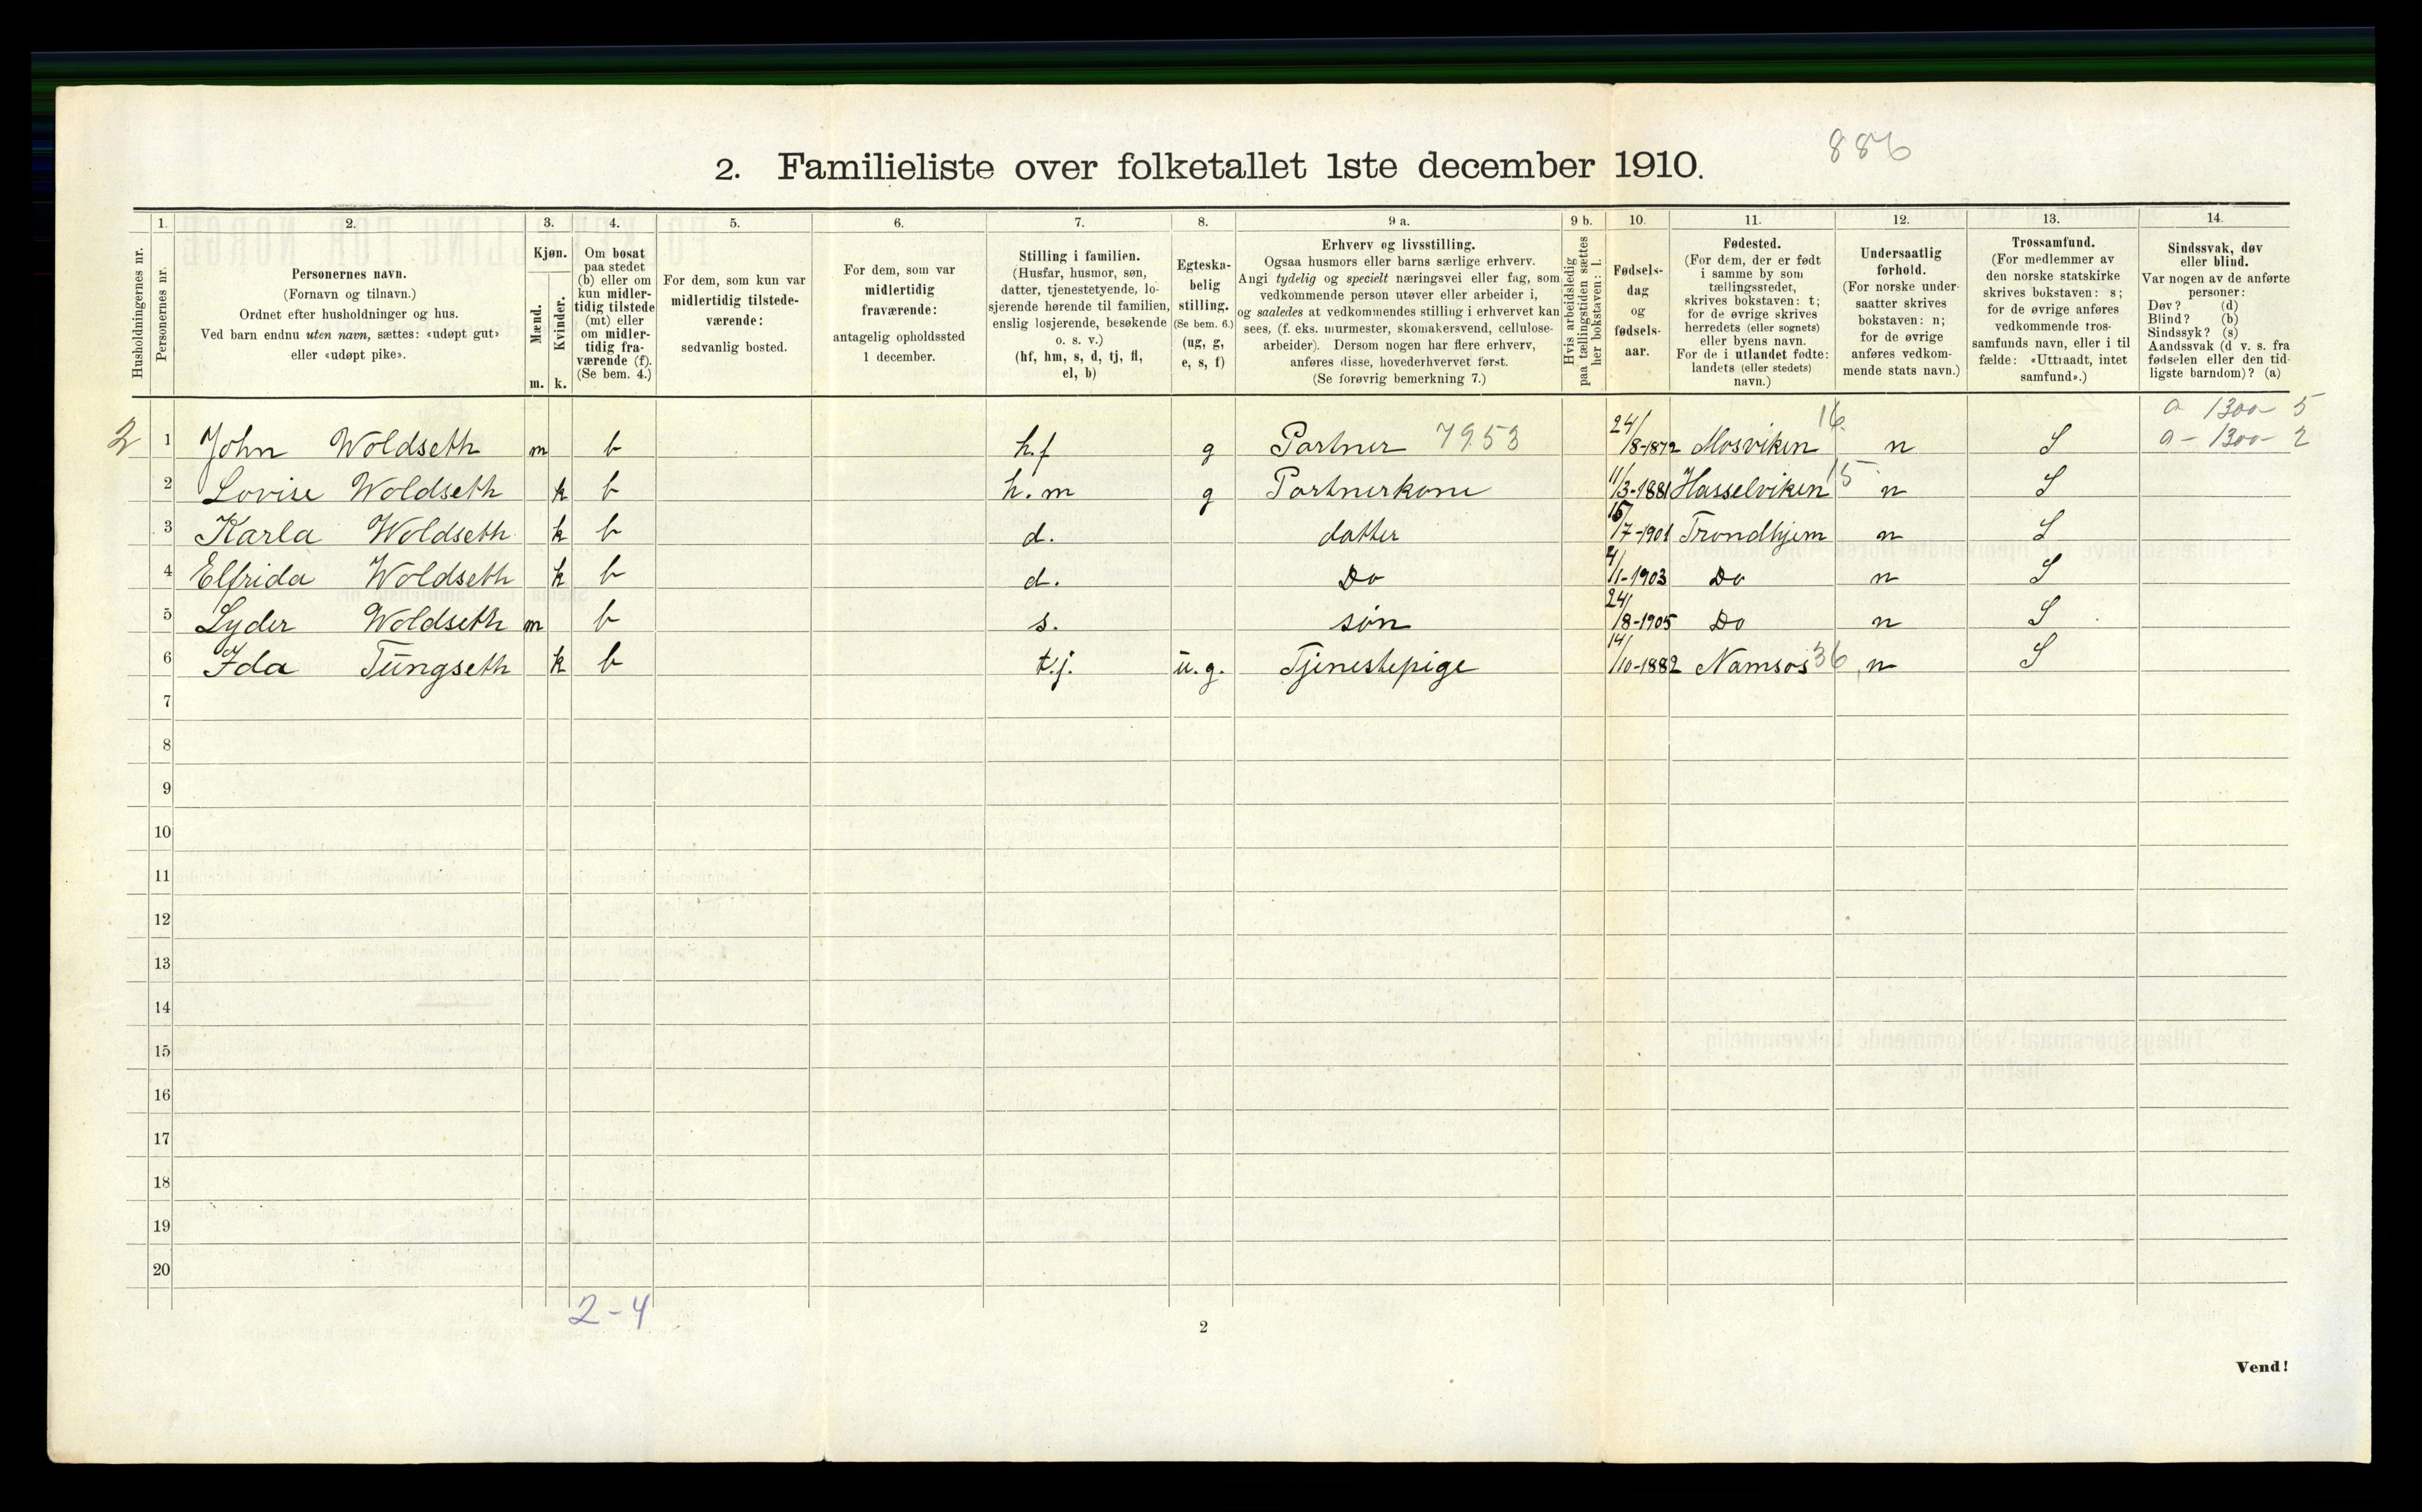 886
2. Familieliste over folketallet 1ste december 1910.
Husholdningernes nr.
1. Personernes nr.
2. Personernes navn. (Fornavn og tilnavn.) Ordnet efter husholdninger og hus. Ved barn endnu uten navn, sættes: «udøpt gut» eller «udøpt pike».
3. Kjøn. Mænd. m. Kvinder. k.
4. Om bosat paa stedet (b) eller om kun midlertidig tilstede (mt) eller om midlertidig fraværende (f). (Se bem. 4.)
5. For dem, som kun var midlertidig tilstedeværende: sedvanlig bosted.
6. For dem, som var midlertidig fraværende: antagelig opholdssted 1 december.
7. Stilling i familien. (Husfar, husmor, søn, datter, tjenestetyende, losjerende hørende til familien, enslig losjerende, besøkende o. s. v.) (hf, hm, s, d, tj, fl, el, b)
8. Egteskabelig stilling. (Se bem. 6.) (ug, g, e, s, f)
9 a. Erhverv og livsstilling. Ogsaa husmors eller barns særlige erhverv. Angi tydelig og specielt næringsvei eller fag, som vedkommende person utøver eller arbeider i, og saaledes at vedkommendes stilling i erhvervet kan sees, (f. eks. murmester, skomakersvend, cellulosearbeider). Dersom nogen har flere erhverv, anføres disse, hovederhvervet først. (Se forøvrig bemerkning 7.)
9 b. Hvis arbeidsledig paa tællingstiden sættes her bokstaven: l.
10. Fødselsdag og fødselsaar.
11. Fødested. (For dem, der er født i samme by som tællingsstedet, skrives bokstaven: t; for de øvrige skrives herredets (eller sognets) eller byens navn. For de i utlandet fødte: landets (eller stedets) navn.)
12. Undersaatlig forhold. (For norske undersaatter skrives bokstaven: n; for de øvrige anføres vedkommende stats navn.)
13. Trossamfund. (For medlemmer av den norske statskirke skrives bokstaven: s; for de øvrige anføres vedkommende trossamfunds navn, eller i tilfælde: «Uttraadt, intet samfund».)
14. Sindssvak, døv eller blind. Var nogen av de anførte personer: Døv? (d) Blind? (b) Sindssyk? (s) Aandssvak (d v. s. fra fødselen eller den tidligste barndom)? (a)
a 1300 - 5
2 1 John Woldseth m b h.f g Portner 7953 24/8-1872 Mosviken 16. n S a - 1300 - 2
2 Lovise Woldseth k b h.m g Portnerkone 11/3-1881 Hasselviken 15 n S
3 Karla Woldseth k b d. datter 15/7-1901 Trondhjem n S
4 Elfrida Woldseth k b d. Do /11-1903 Do n S
5 Lyder Woldseth m b s. søn 24/8-1905 Do n S
6 Ida Tungseth k b t.j. u.g. Tjenestepige 14/10-1882 Namsos 36 n S
7
8
9
10
11
12
13
14
15
16
17
18
19
20
2-4
2
Vend!